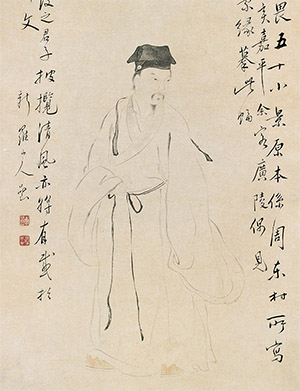 畏五十小景原本係周東村所寫
亥嘉平余客廣陵偶見
緣摹此幅
之君子披攬清風亦將有感於
文
新羅山人喦